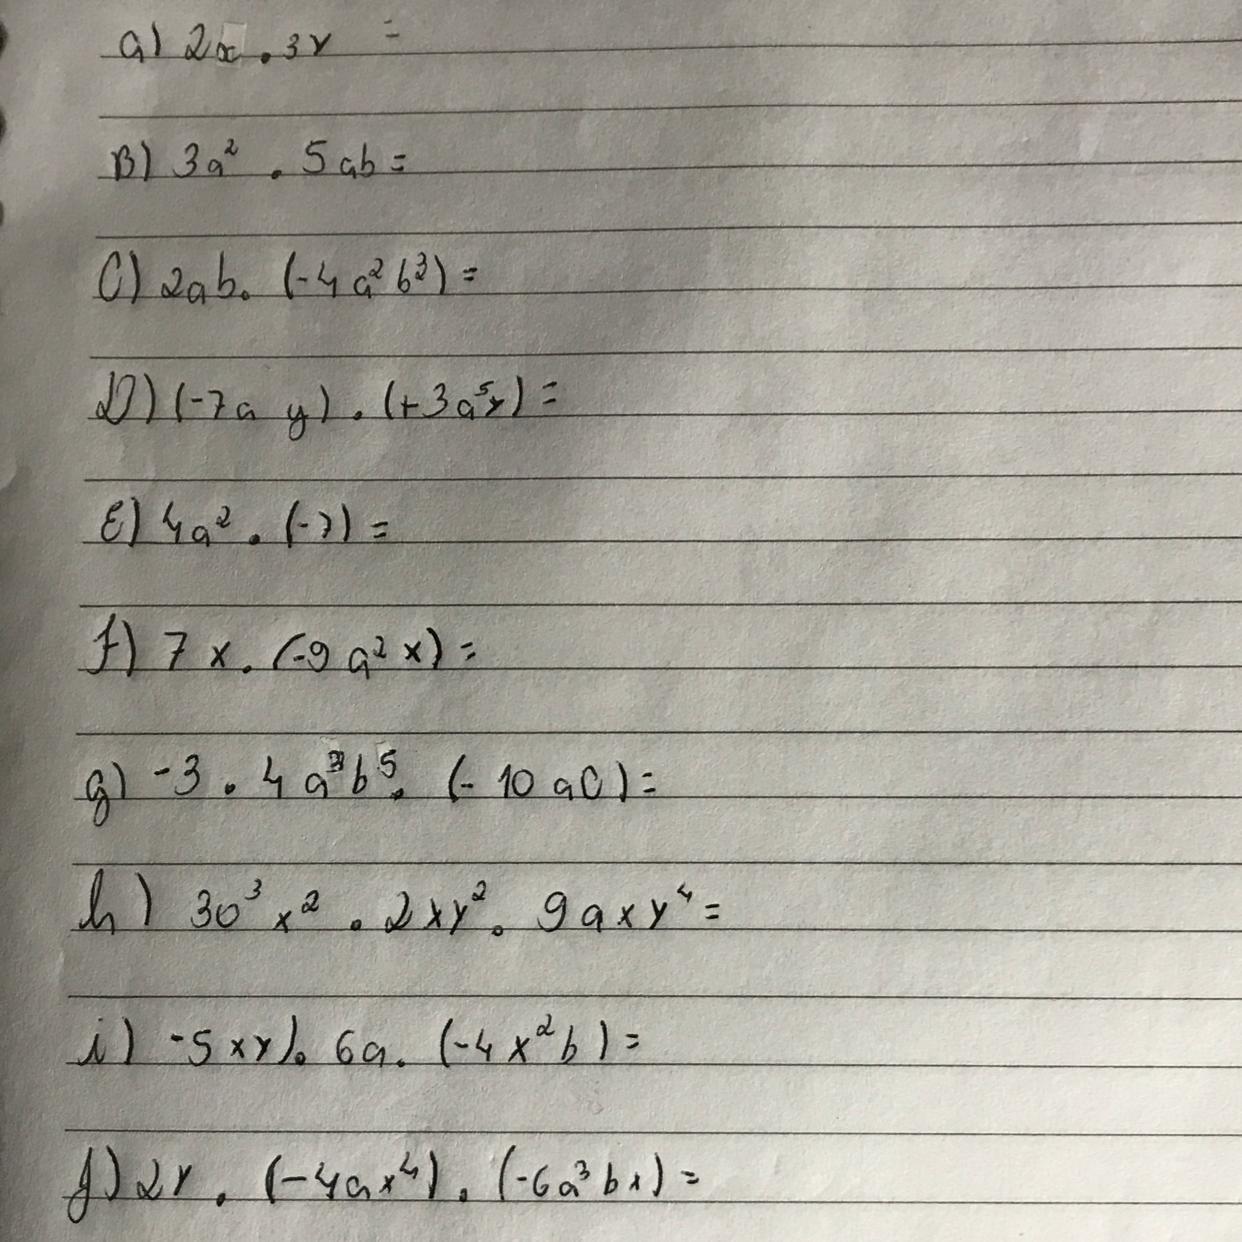 a) 2x . 3y =
B) 3a² . 5ab =
C) 2ab. (-4a²b³) =
D) (-7a y) . (+3a⁵y) =
E) 4a² . (-7) =
f) 7x. (-9a²x) =
g) -3 . 4a³b⁵. (-10aC) =
h) 3a³x² . 2xy². 9axy⁴ =
i) -5xy). 6a. (-4x²b) =
j) 2y . (-4ax⁴) . (-6a³bx) =